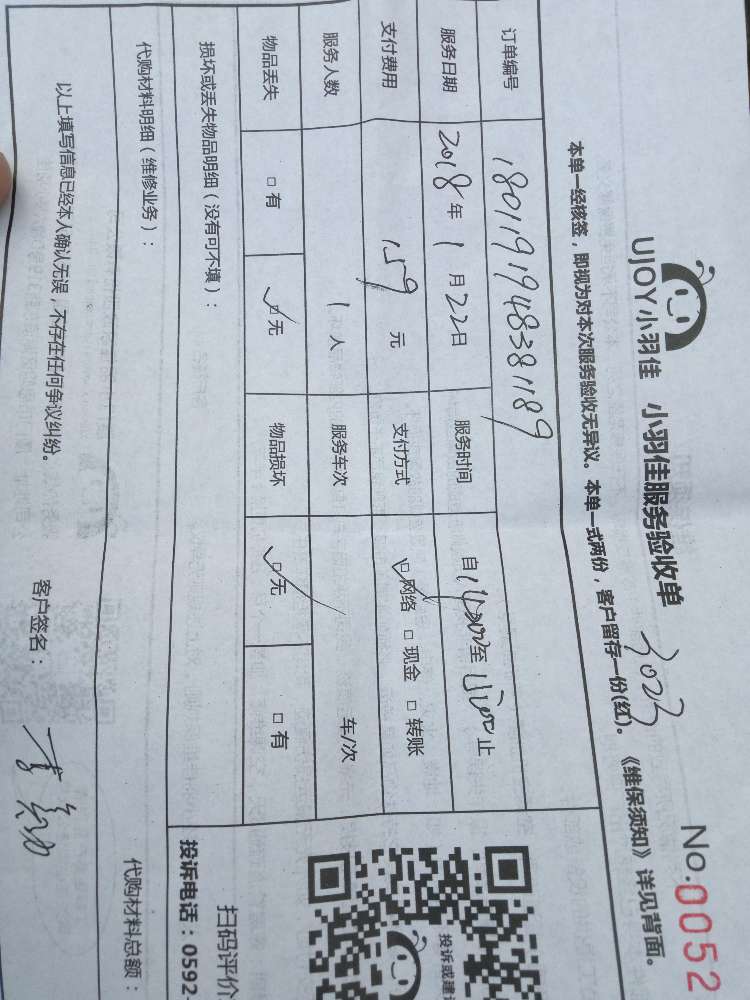 UJOY小羽佳 小羽佳服务验收单 3023 No.0052
本单一经核签，即视为对本次服务验收无异议。本单一式两份，客户留存一份(红)。《维保须知》详见背面。
订单编号 1801191948381189
服务日期 2018年1月22日 服务时间 自14:00至 止
支付费用 159元 支付方式 网络 现金 转账
服务人数 1人 服务车次 车/次
物品丢失 有 无 物品损坏 无 有
损坏或丢失物品明细（没有可不填）：
代购材料明细（维修业务）： 代购材料总额：
以上填写信息已经本人确认无误，不存在任何争议纠纷。 客户签名：
投诉或建
扫码评价
投诉电话：0592-